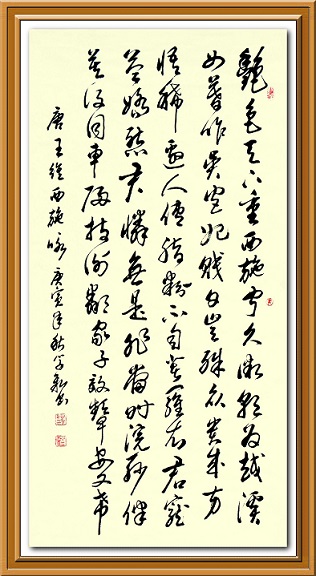 艷色天下重西施宁久微朝为越溪
女暮作吴宫妃贱日岂殊众贵来方
悟稀邀人傅脂粉不自著羅衣君寵
益嬌態君憐無是非當时浣紗伴
莫得同車歸持謝鄰家子效颦安可希
唐王維西施咏庚寅年秋